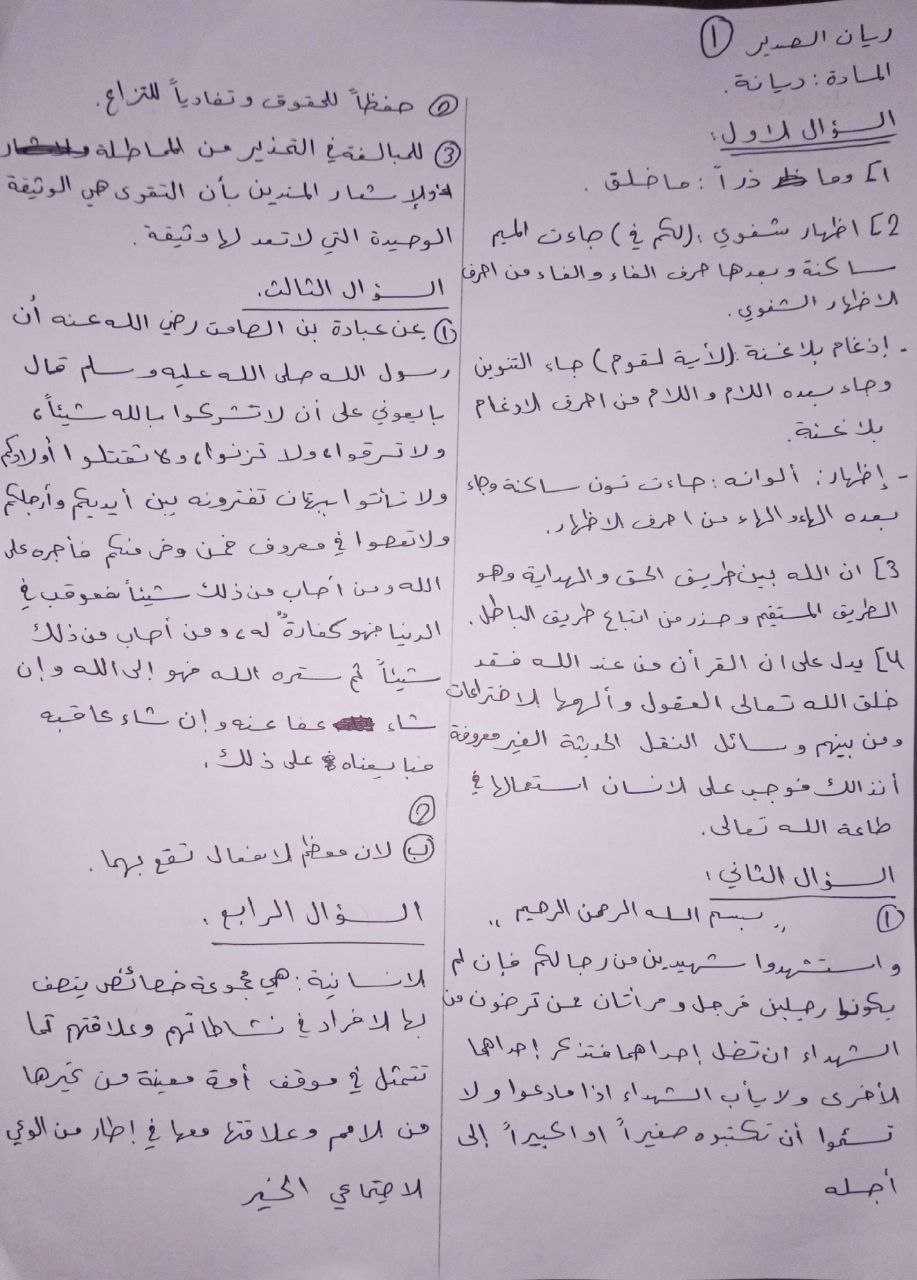 ريان الصدير ①
المادة : ديانة .
السؤال الاول :
1] وما ذرأ : ما خلق .
2] اظهار شفوي : (لكم في) جاءت الميم
ساكنة وبعدها حرف الفاء والفاء من احرف
الاظهار الشفوي .
- إدغام بلا غنة : (لأية لقوم) جاء التنوين
وجاء بعده اللام واللام من احرف الادغام
بلا غنة .
- إظهار : ألوانه : جاءت نون ساكنة وجاء
بعده الهاء والهاء من احرف الاظهار .
3] ان الله بين طريق الحق والهداية وهو
الطريق المستقيم وحذر من اتباع طريق الباطل .
4] يدل على ان القرآن من عند الله فقد
خلق الله تعالى العقول وألهمها الاختراعات
ومن بينهم وسائل النقل الحديثة الغير معروفة
أنذالك فوجب على الانسان استعمالها في
طاعة الله تعالى .
السؤال الثاني :
① ,, بسم الله الرحمن الرحيم ,,
واستشهدوا شهيدين من رجالكم فإن لم
يكونوا رجلين فرجل ومرأتان ممن ترضون من
الشهداء ان تضل إحداهما فتذكر إحداهما
الأخرى ولا يأب الشهداء اذا مادعوا ولا
تسئموا أن تكتبوه صغيراً او اكبيراً إلى
أجله
② حفظاً للحقوق وتفادياً للنزاع .
③ للمبالغة في التحذير من المماطلة
ولإشعار المدينين بأن التقوى هي الوثيقة
الوحيدة التي لا تعد لها وثيقة .
السؤال الثالث .
① عن عبادة بن الصامت رضي الله عنه أن
رسول الله صلى الله عليه وسلم قال
بايعوني على أن لا تشركوا بالله شيئاً ،
ولا تسرقوا ، ولا تزنوا ، ولا تقتلوا أولادكم
ولا تأتوا ببهتان تفترونه بين أيديكم وأرجلكم
ولا تعصوا في معروف فمن وفى منكم فأجره على
الله ومن أصاب من ذلك شيئاً فعوقب في
الدنيا فهو كفارةٌ له ، ومن أصاب من ذلك
شيئاً ثم ستره الله فهو إلى الله وإن
شاء عفا عنه وإن شاء عاقبه
فبايعناه على ذلك .
②
ب لان معظم الافعال تقع بهما .
السؤال الرابع .
الانسانية : هي مجموعة خصائص يتصف
بها الافراد في نشاطاتهم وعلاقتهم كما
تتمثل في موقف أمة معينة من غيرها
من الامم وعلاقتها معها في إطار من الوعي
الاجتماعي الخير